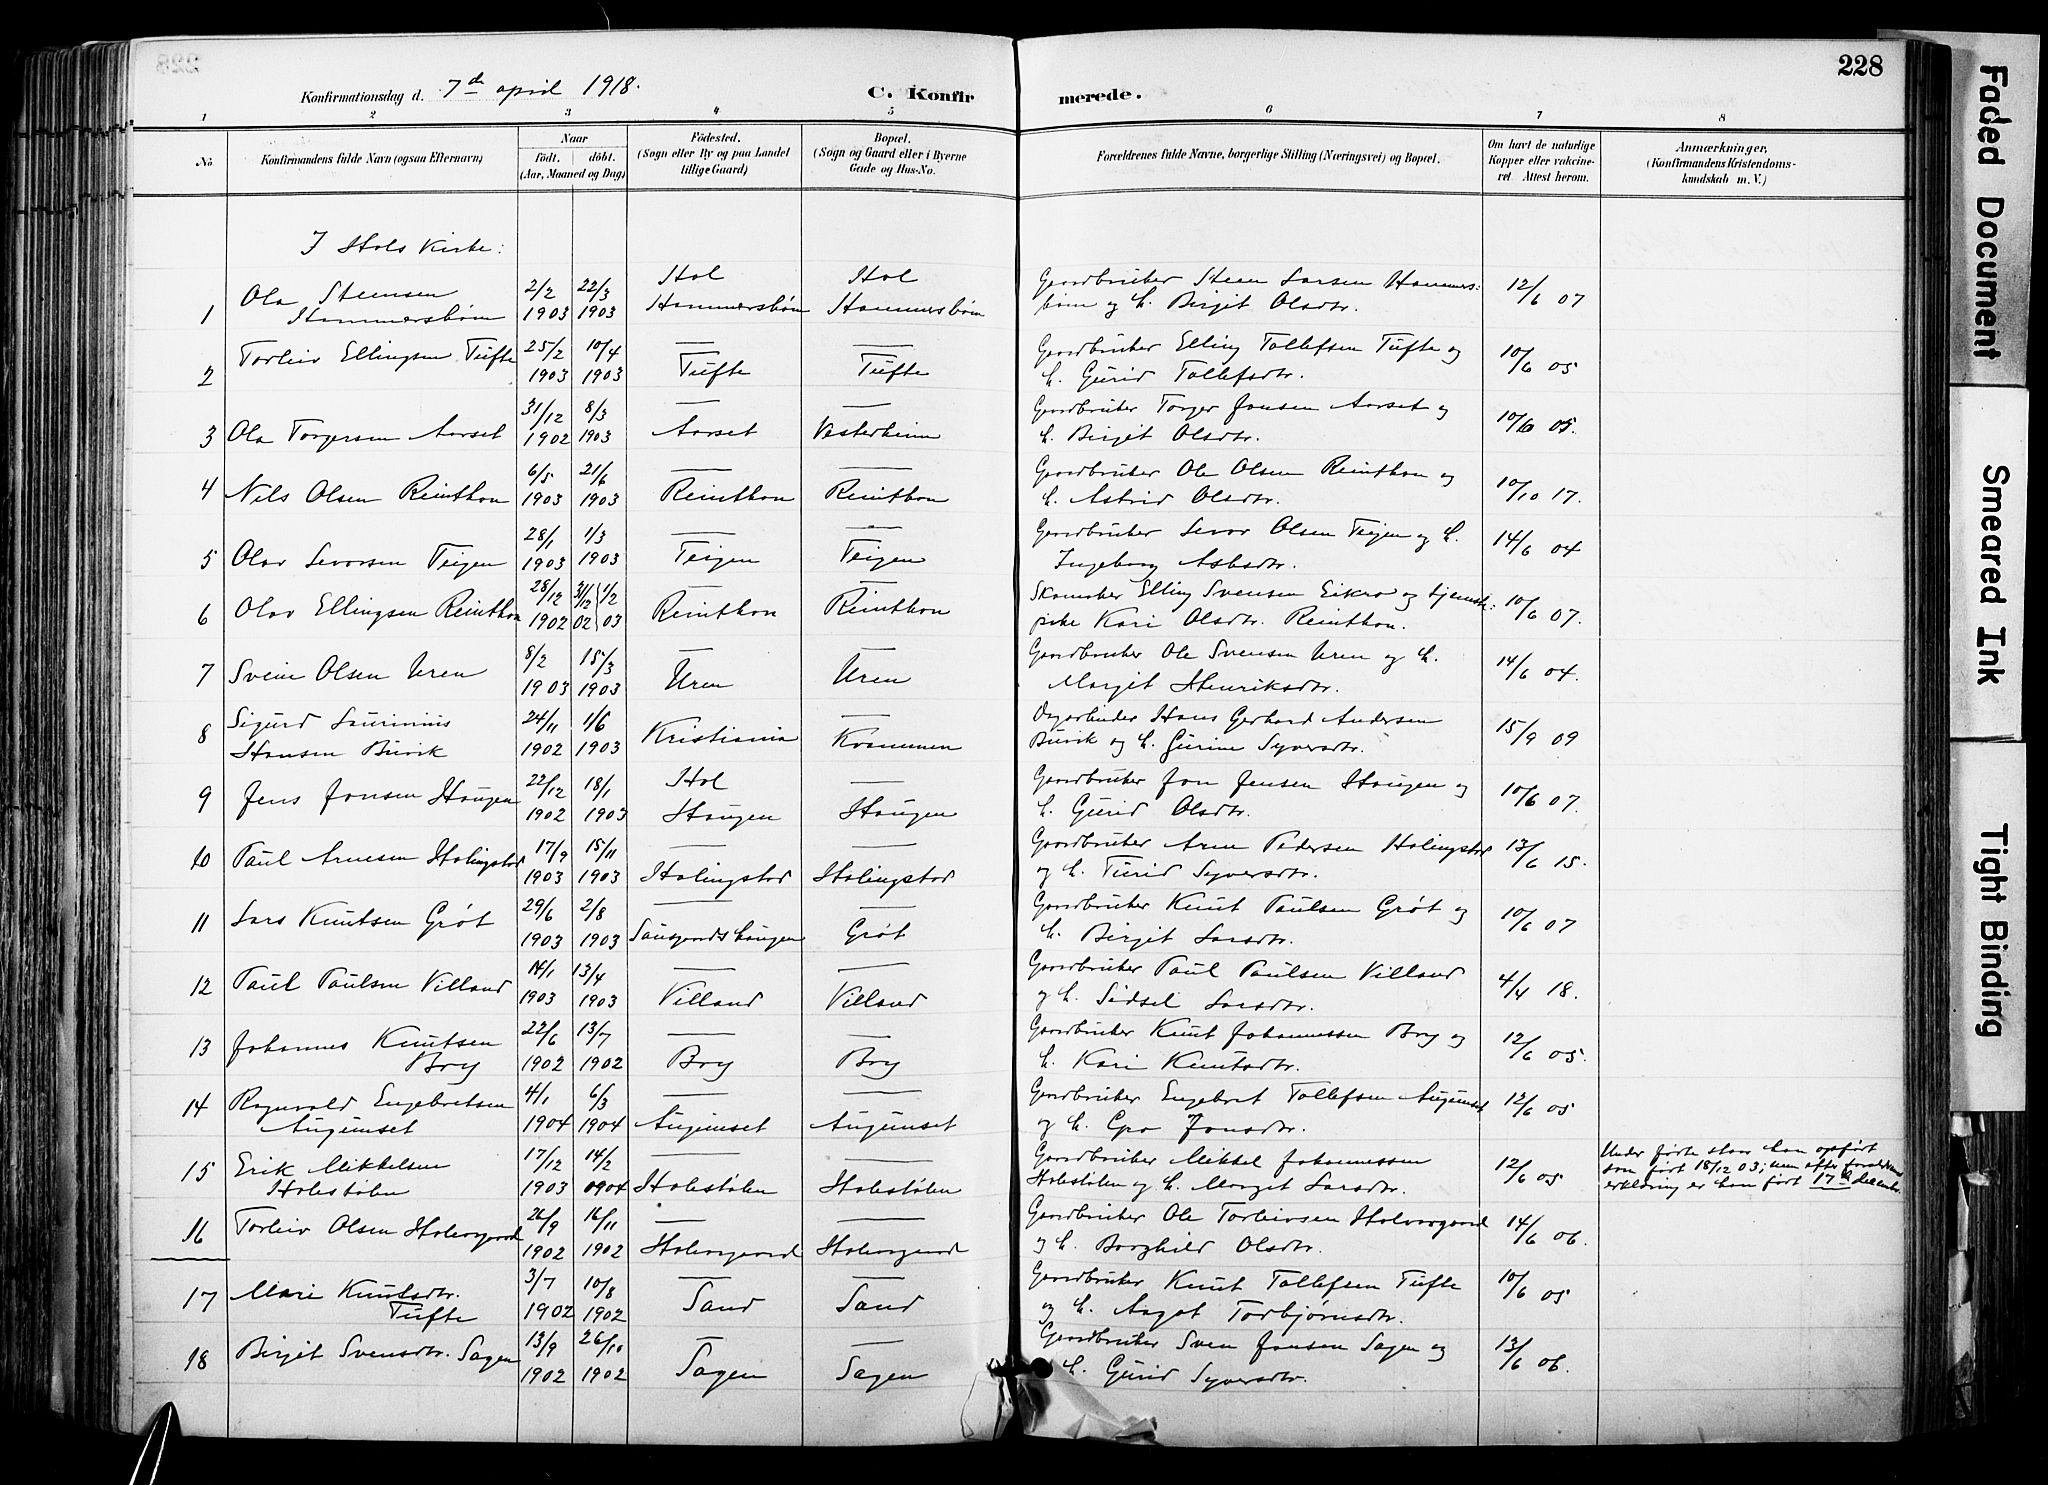 228
Konfirmationsdag d. 7de april 1918.
C. Konfirmerede.
1 2 3 4 5 6 7 8
No
Konfirmandens fulde Navn (ogsaa Efternavn)
Naar
født. døbt.
(Aar, Maaned og Dag)
Fødested.
(Sogn eller By og paa Landet
tillige Gaard)
Bopæl.
(Sogn og Gaard eller i Byerne
Gade og Hus-No.
Forældrenes fulde Navne, borgerlige Stilling (Næringsvei) og Bopæl.
Om havt de naturlige
Kopper eller vaccine-
ret. Attest herom.
Anmærkninger,
(Konfirmandens Kristendoms-
kundskab m. V.)
I Hols Kirke:
Ola Steensen 2/2 22/3 Hol Hol Gaardbruker Steen Larsen Hammers- 12/6 07
1 Hammersbøen 1903 1903 Hammersbøen Hammersbøen bøen og h. Birgit Olsdtr.
Torleiv Ellingsen Tufte 25/2 10/4 — — Gaardbruker Elling Tollefsen Tufte og 10/6 05
2 1903 1903 Tufte Tufte h. Gurid Tollefsdtr.
31/12 8/3 — — Gaardbruker Torger Jonsen Aarset og
3 Ola Torgersen Aarset 1902 1903 Aarset Vesterheim h. Birgit Olsdtr. 10/6 05.
6/5 21/6 — — Gaardbruker Ole Olsen Reinthon og
4 Nils Olsen Reinthon 1903 1903 Reinthon Reinthon h. Astrid Olsdtr. 10/10 17.
28/1 1/3 — — Gaardbruker Levor Olsen Teigen og h. 14/6 04
5 Olav Levorsen Teigen 1903 1903 Teigen Teigen Ingeborg Asbdtr.
28/12 31/12 1/2 — — Skomaker Elling Svensen Eikro og tjeneste-
6 Olav Ellingsen Reinthon 1902 02 03 Reinthon Reinthon pike Kari Olsdtr. Reinthon. 10/6 07.
8/2 15/3 — — Gaardbruker Ole Svensen Uren og h.
7 Svein Olsen Uren 1903 1903 Uren Uren Margit Henriksdtr. 14/6 04.
Sigurd Laurinius 24/11 1/6 — Dagarbeider Hans Gerhard Andersen
8 Hansen Buvik 1902 1903 Kristiania Kvammen Buvik og h. Gurine Syversdtr. 15/9 09
22/12 18/1 Hol — Gaardbruker Jon Jensen Haugen og
9 Jens Jonsen Haugen 1902 1903 Haugen Haugen h. Gurid Olsdtr. 10/6 07.
17/9 15/11 — — Gaardbruker Arne Pedersen Halingstad
10 Paul Arnesen Halingstad 1903 1903 Halingstad Halingstad og h. Turid Syversdtr. 13/6 15.
29/6 2/8 — — Gaardbruker Knut Paulsen Grøt og
11 Lars Knutsen Grøt 1903 1903 Grøt h. Birgit Larsdtr. 10/6 07
14/1 13/4 — — Gaardbruker Paul Paulsen Villand
12 Paul Paulsen Villand 1903 1903 Villand Villand og h. Sidsel Larsdtr. 4/4 18.
22/6 13/7 — — Gaardbruker Knut Johannessen Bry og
13 Johannes Knutsen Bry 1902 1902 Bry Bry h. Kari Knutsdtr. 12/6 05.
4/1 6/3 — — Gaardbruker Engebret Tollefsen Augunset
14 Ragnvald Engebretsen Augunset 1904 1904 Augunset Augunset og h. Gro Jonsdtr. 12/6 05
17/12 14/2 — — Gaardbruker Mikkel Johannessen
15 Erik Mikkelsen Holestølen 1903 1904 Holestølen Holestølen Holestølen og h. Margit Larsdtr. 12/6 05
Under fødte staar han opført
som født 18/12 03; men efter forældrenes
erklæring er han født 17de december.
26/9 16/11 — — Gaardbruker Ole Torleivsen Halvorgaard
16 Torleiv Olsen Halvorgaard 1902 1902 Halvorgaard Halvorgaard og h. Borghild Olsdtr. 14/6 06.
3/7 10/8 — — Gaardbruker Knut Tollefsen Tufte
17 Mari Knutsdtr. Tufte 1902 1902 Sand Sand og h. Aagot Torbjørnsdtr. 10/6 05
13/9 26/10 — — Gaardbruker Sven Jonsen Sagen og
18 Birgit Svensdtr. Sagen 1902 1902 Sagen Sagen h. Gurid Syversdtr. 13/6 06.
Faded Document
Smeared Ink
Tight Binding